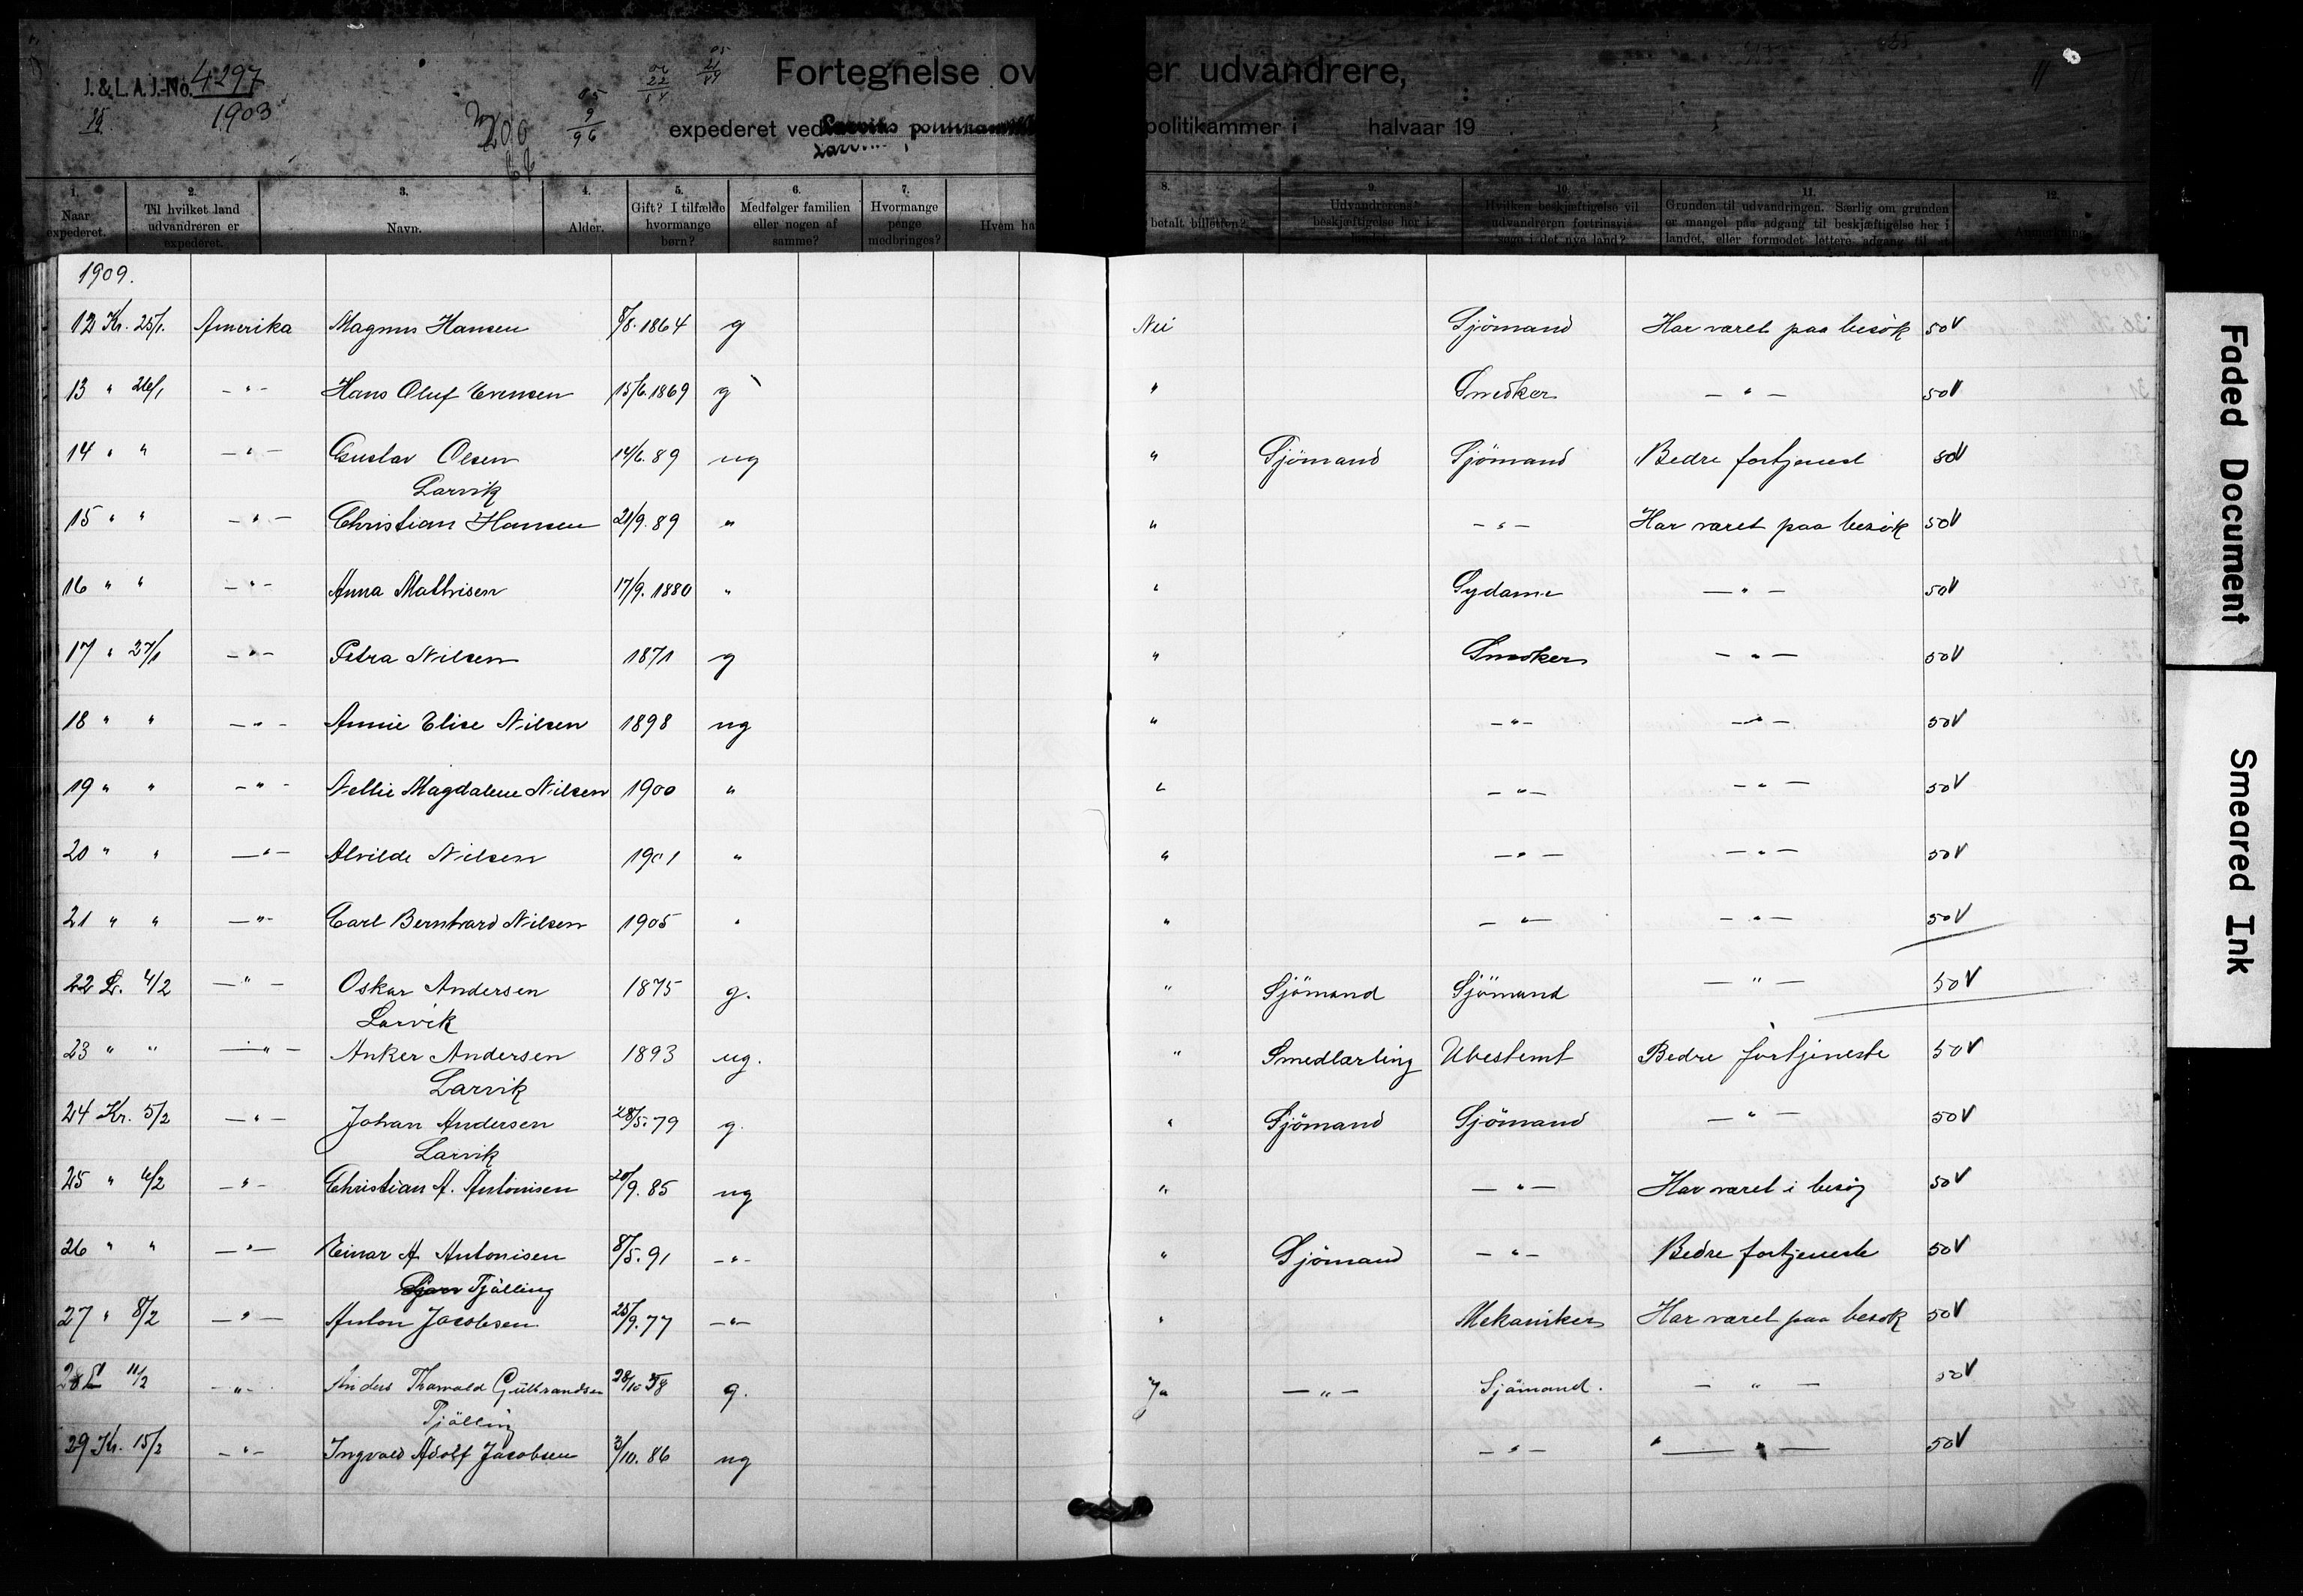 J. & L. A. J.-No. 4297
1903
Fortegnelse over udvandrere,
expederet ved Larviks politikammer i halvaar 19
1. Naar expederet.
2. Til hvilket land udvandreren er expederet.
3. Navn.
4. Alder.
5. Gift? I tilfælde hvormange børn?
6. Medfølger familien eller nogen af samme?
7. Hvormange penge medbringes?
8. Hvem ha betalt billetten?
9. Udvandrerens beskjæftigelse her i
10. Hvilken beskjæftigelse vil udvandreren fortrinsvis søge i det nye land?
11. Grunden til udvandringen. Særlig om grunden er mangel paa adgang til beskjæftigelse her i landet, eller formodet lettere adgang til at
12. Anmerkning.
1909.
12 Kr. 25/1. Amerika Magnus Hansen 8/8. 1864 g Nei Sjömand Har været paa besök 50 V
13 " 26/1 - " - Hans Oluf Evensen 15/6. 1869 g " Snedker - " - 50 V
14 " " - " - Gustav Olsen 14/6. 89 ug " Sjömand Sjömand Bedre fortjenest 50 V
Larvik
15 " " - " - Christian Hansen 21/9. 89 " " - " - Har været paa besök 50 V
16 " " - " - Anna Mathisen 17/9. 1880 " " Sydame - " - 50 V
17 " 27/1 - " - Petra Nilsen 1871 g " Snedker - " - 50 V
18 " " - " - Annie Elise Nilsen 1898 ug " - " - - " - 50 V
19 " " - " - Nellie Magdalene Nilsen 1900 " " - " - - " - 50 V
20 " " - " - Alvilde Nilsen 1901 " " - " - - " - 50 V
21 " " - " - Carl Bernhard Nilsen 1905 " " - " - - " - 50 V
22 L. 4/2 - " - Oskar Andersen 1875 g. " Sjömand Sjömand - " - 50 V
Larvik
23 " " - " - Anker Andersen 1893 ug. " Smedlærling Ubestemt Bedre fortjeneste 50 V
Larvik
24 Kr. 5/2 - " - Johan Andersen 28/5. 79 g. " Sjömand Sjömand - " - 50 V
Larvik
25 " 6/2 - " - Christian A. Antonisen 20/9. 85 ug " - " - Har været i besög 50 V
26 " " - " - Einar A Antonisen 8/5. 91 - " - " Sjömand - " - Bedre fortjeneste 50 V
Tjölling
27 " 8/2 - " - Anton Jacobsen 25/9. 77 - " - " Mekaniker Har været paa besök 50 V
28 L 11/2 - " - Anders Thorvald Gulbrandsen 28/10 58 g. Ja - " - Sjömand. - " - 50 V
Tjölling
29 Kr. 15/2 - " - Ingvald Adolf Jacobsen 3/10. 86 ug - " - " - " - 50 V
Faded Document
Smeared Ink